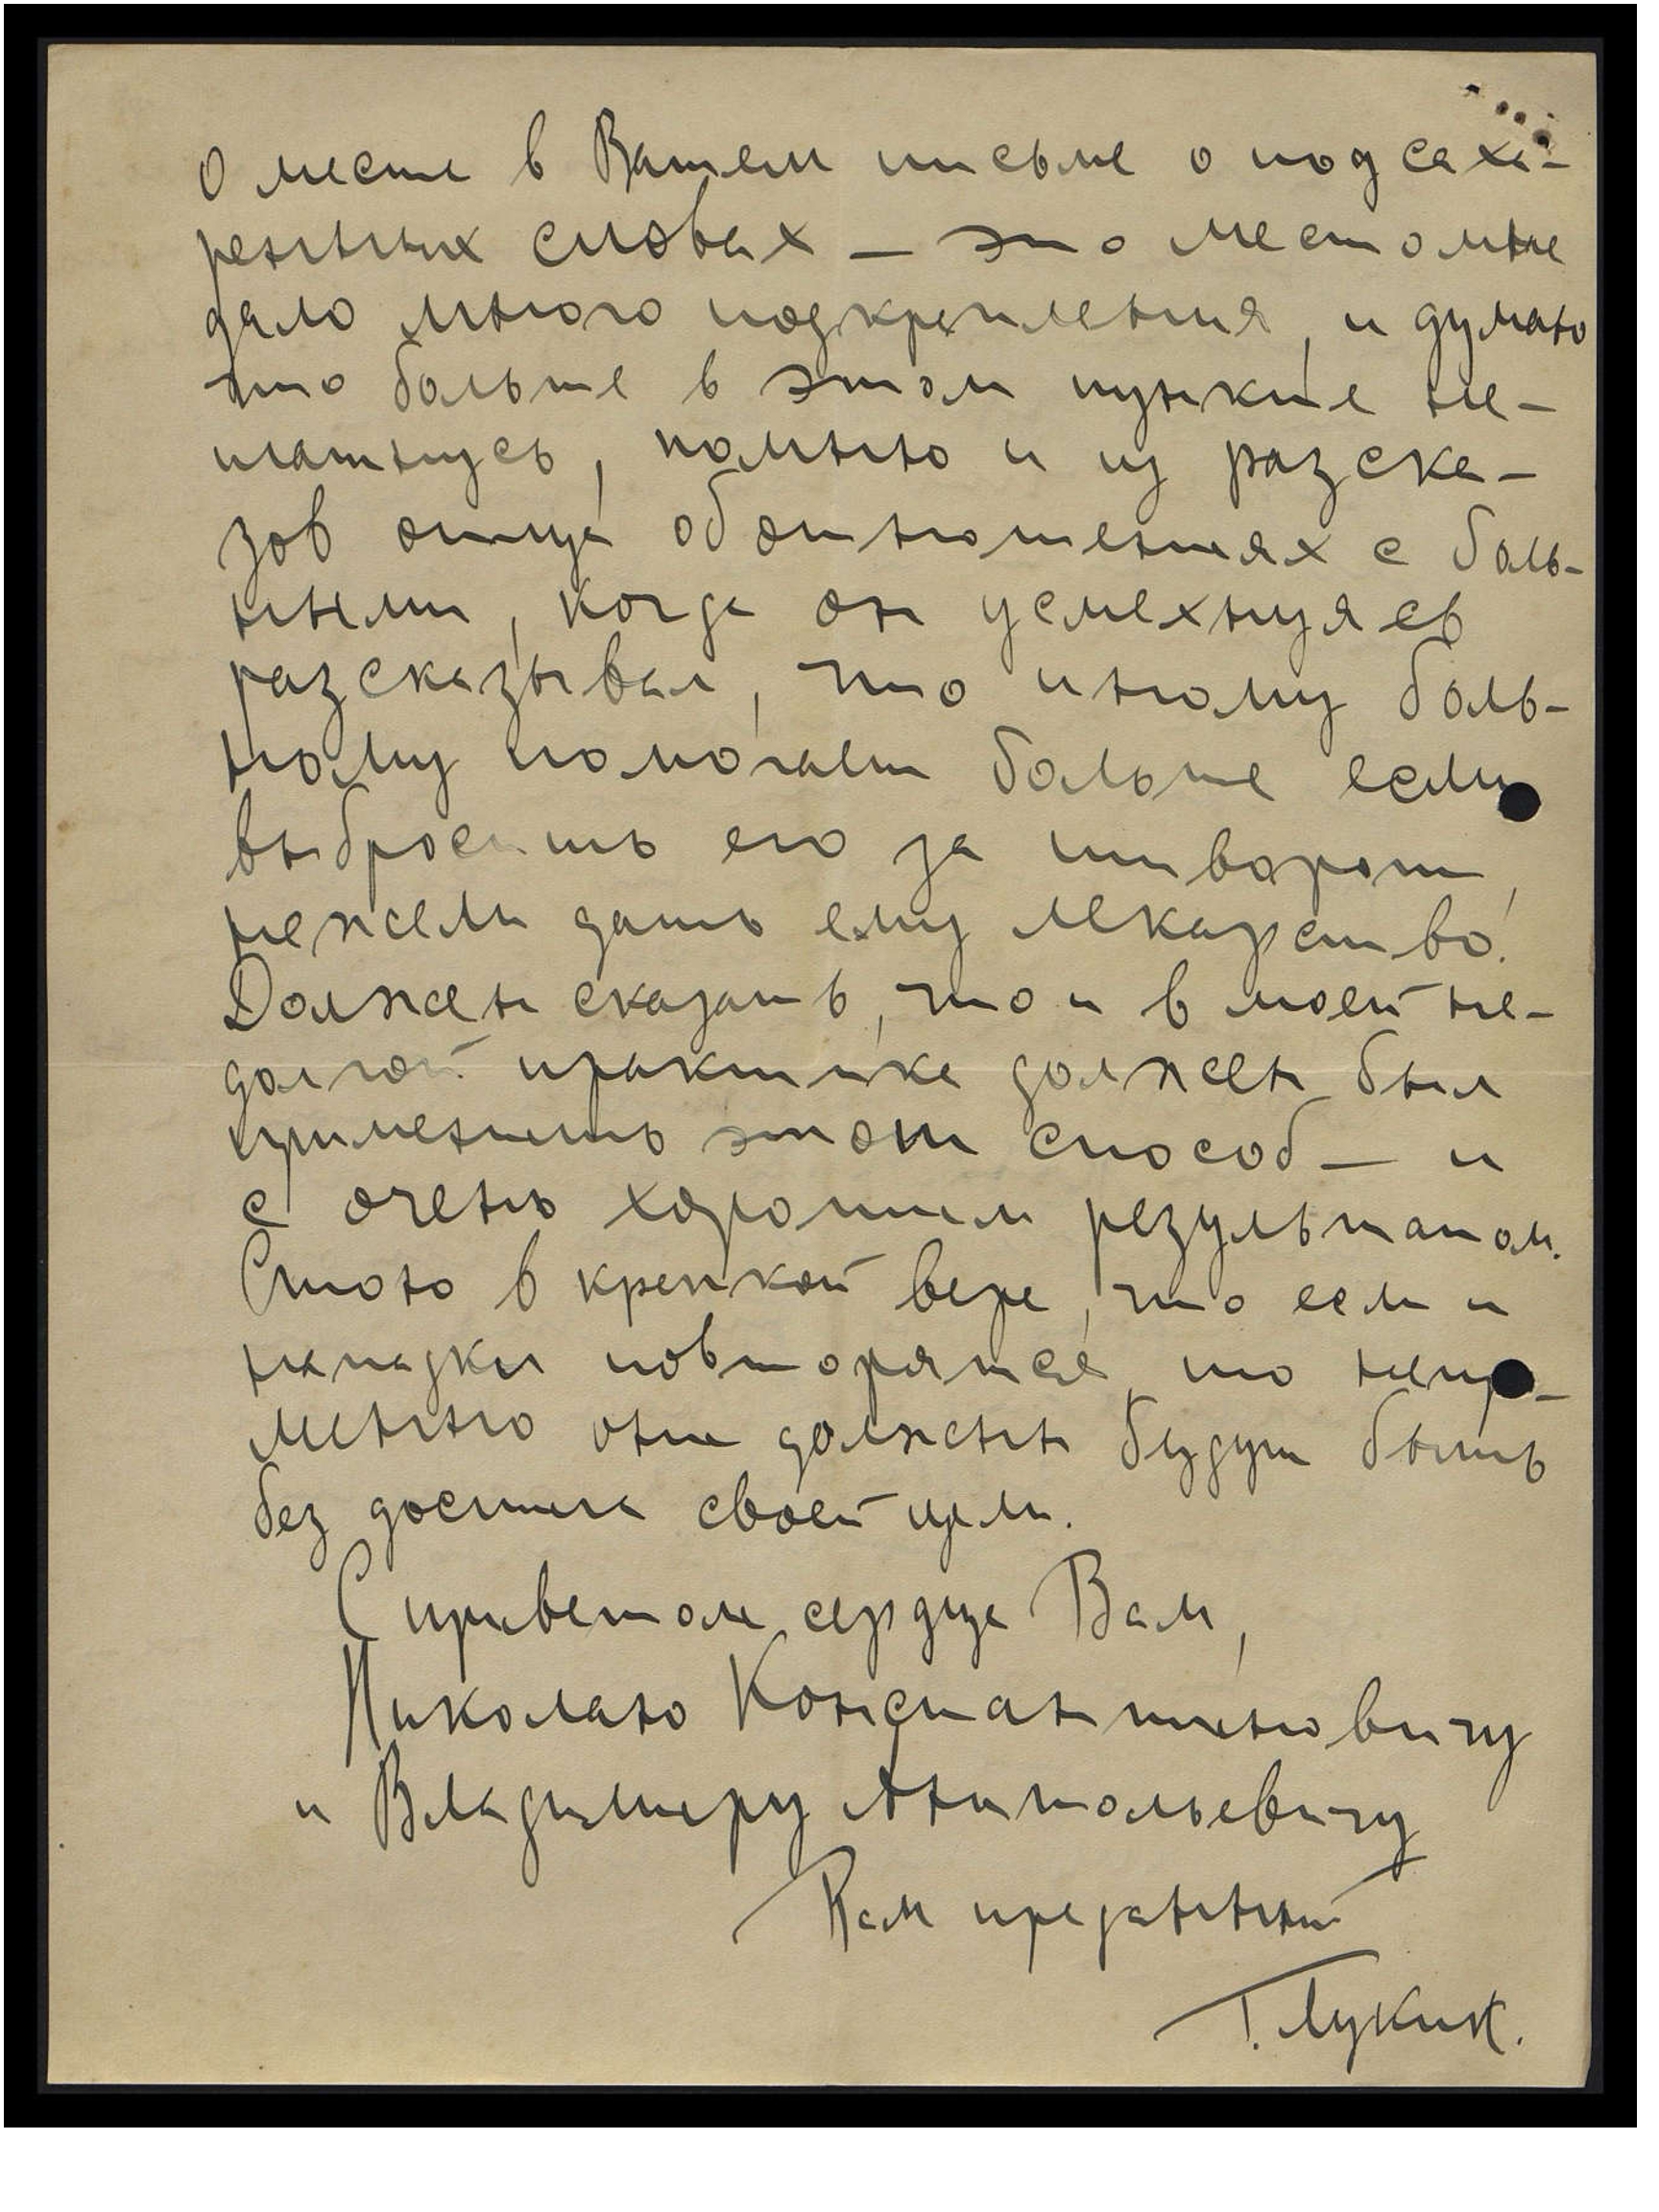 О месте в Вашем письме о подсаха-
ренных словах — это место мне
дало много подкрепления, и думаю
что больше в этом пункте не-
шатнусь, помню и из разска-
зов отца об отношениях с боль-
ными, когда он усмехнуляясь
разсказывал, что иному боль-
ному помогает больше если
выбросить его за шиворот,
нежели дать ему лекарство.
Должен сказать, что и в моей не-
долгой практике должен был
применить этот способ — и
с очень хорошим результатом.
Стою в крепкой вере, что если и
нападки повторятся, то непре-
менно они должны будут быть
без достига своей цели.
С приветом сердца Вам,
Николаю Константиновичу
и Владимиру Анатольевичу
Вам преданный
Г. Лукин.